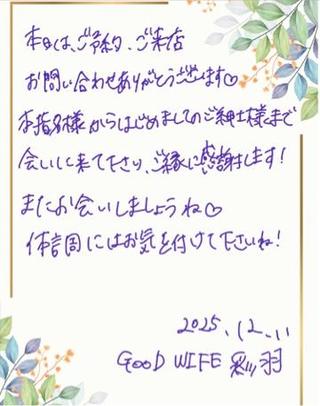 本日は、ご予約、ご来店
お問い合わせありがとうございます♡
本指名様からはじめましてのご紳士様まで
会いに来て下さり、ご縁に感謝します！
またお会いしましょうね♡
体調にはお気を付けて下さいね！
2025.12.11
GOOD WIFE 彩羽